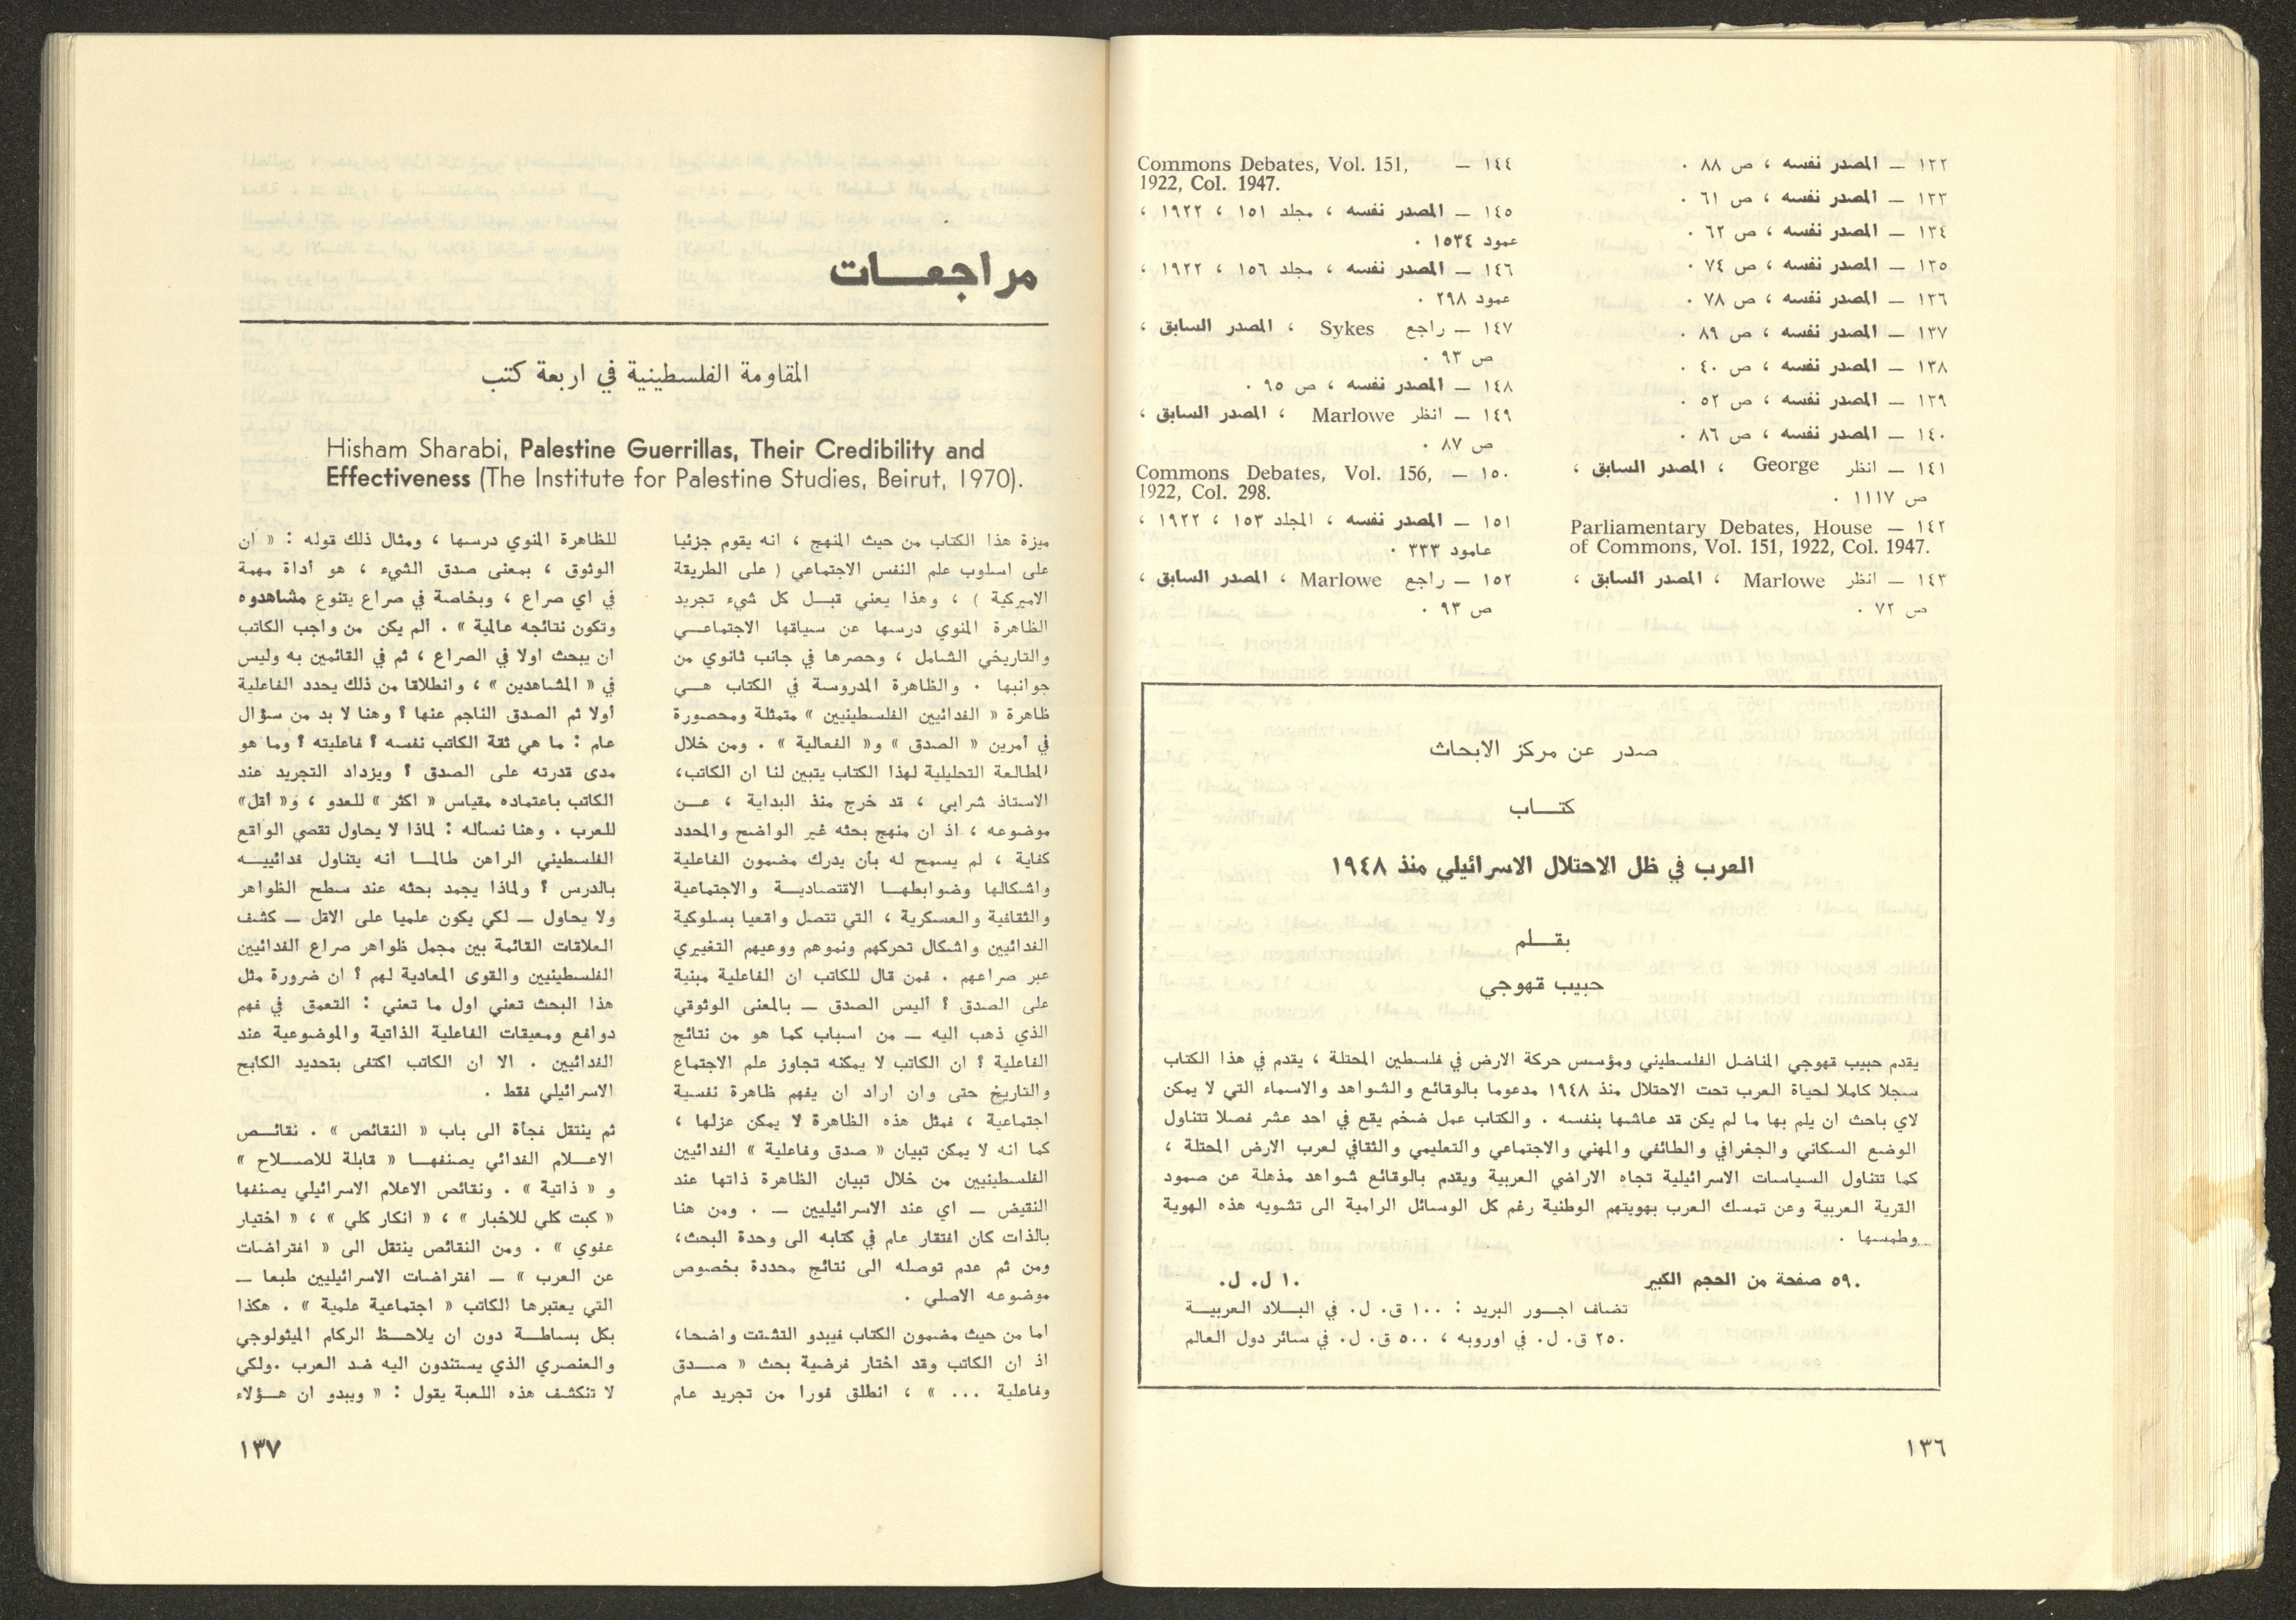 ١٣٢ — المصدر نفسه ، ص ٨٨ .
١٣٣ — المصدر نفسه ، ص ٦١ .
١٣٤ — المصدر نفسه ، ص ٦٢ .
١٣٥ — المصدر نفسه ، ص ٧٤ .
١٣٦ — المصدر نفسه ، ص ٧٨ .
١٣٧ — المصدر نفسه ، ص ٨٩ .
١٣٨ — المصدر نفسه ، ص ٤٠ .
١٣٩ — المصدر نفسه ، ص ٥٢ .
١٤٠ — المصدر نفسه ، ص ٨٦ .
١٤١ — انظر George ، المصدر السابق ،
ص ١١١٧ .
١٤٢ — Parliamentary Debates, House
of Commons, Vol. 151, 1922, Col. 1947.
١٤٣ — انظر Marlowe ، المصدر السابق ،
ص ٧٢ .
١٤٤ — Commons Debates, Vol. 151,
1922, Col. 1947.
١٤٥ — المصدر نفسه ، مجلد ١٥١ ، ١٩٢٢ ،
عمود ١٥٣٤ .
١٤٦ — المصدر نفسه ، مجلد ١٥٦ ، ١٩٢٢ ،
عمود ٢٩٨ .
١٤٧ — راجع Sykes ، المصدر السابق ،
ص ٩٣ .
١٤٨ — المصدر نفسه ، ص ٩٥ .
١٤٩ — انظر Marlowe ، المصدر السابق ،
ص ٨٧ .
١٥٠ — Commons Debates, Vol. 156,
1922, Col. 298.
١٥١ — المصدر نفسه ، المجلد ١٥٣ ، ١٩٢٢ ،
عامود ٣٣٣ .
١٥٢ — راجع Marlowe ، المصدر السابق ،
ص ٩٣ .
صدر عن مركز الابحاث
كتـــاب
العرب في ظل الاحتلال الاسرائيلي منذ ١٩٤٨
بقـــلم
حبيب قهوجي
يقدم حبيب قهوجي المناضل الفلسطيني ومؤسس حركة الارض في فلسطين المحتلة ، يقدم في هذا الكتاب
سجلا كاملا لحياة العرب تحت الاحتلال منذ ١٩٤٨ مدعوما بالوقائع والشواهد والاسماء التي لا يمكن
لاي باحث ان يلم بها ما لم يكن قد عاشها بنفسه . والكتاب عمل ضخم يقع في احد عشر فصلا تتناول
الوضع السكاني والجغرافي والطائفي والمهني والاجتماعي والتعليمي والثقافي لعرب الارض المحتلة ،
كما تتناول السياسات الاسرائيلية تجاه الاراضي العربية ويقدم بالوقائع شواهد مذهلة عن صمود
القرية العربية وعن تمسك العرب بهويتهم الوطنية رغم كل الوسائل الرامية الى تشويه هذه الهوية
وطمسها .
٥٩٠ صفحة من الحجم الكبير ١٠ ل. ل.
تضاف اجـــور البريد : ١٠٠ ق. ل. في البـــلاد العربيـــة
٢٥٠ ق. ل. في اوروبه ، ٥٠٠ ق. ل. في سائر دول العالم
١٣٦
مراجعـــات
المقاومة الفلسطينية في اربعة كتب
Hisham Sharabi, Palestine Guerrillas, Their Credibility and
Effectiveness (The Institute for Palestine Studies, Beirut, 1970).
ميزة هذا الكتاب من حيث المنهج ، انه يقوم جزئيا
على اسلوب علم النفس الاجتماعي ( على الطريقة
الاميركية ) ، وهذا يعني قبـــل كل شيء تجريد
الظاهرة المنوي درسها عن سياقها الاجتماعـــي
والتاريخي الشامل ، وحصرها في جانب ثانوي من
جوانبها . والظاهرة المدروسة في الكتاب هـــي
ظاهرة « الفدائيين الفلسطينيين » متمثلة ومحصورة
في أمرين « الصدق » و« الفعالية » . ومن خلال
المطالعة التحليلية لهذا الكتاب يتبين لنا ان الكاتب،
الاستاذ شرابي ، قد خرج منذ البداية ، عـــن
موضوعه ، اذ ان منهج بحثه غير الواضح والمحدد
كفاية ، لم يسمح له بأن يدرك مضمون الفاعلية
واشكالها وضوابطهـــا الاقتصاديـــة والاجتماعية
والثقافية والعسكرية ، التي تتصل واقعيا بسلوكية
الفدائيين واشكال تحركهم ونموهم ووعيهم التغييري
عبر صراعهم . فمن قال للكاتب ان الفاعلية مبنية
على الصدق ؟ أليس الصدق — بالمعنى الوثوقي
الذي ذهب اليه — من اسباب كما هو من نتائج
الفاعلية ؟ ان الكاتب لا يمكنه تجاوز علم الاجتماع
والتاريخ حتى وان اراد ان يفهم ظاهرة نفسية
اجتماعية ، فمثل هذه الظاهرة لا يمكن عزلها ،
كما انه لا يمكن تبيان « صدق وفاعلية » الفدائيين
الفلسطينيين من خلال تبيان الظاهرة ذاتها عند
النقيض — اي عند الاسرائيليين — . ومن هنا
بالذات كان افتقار عام في كتابه الى وحدة البحث،
ومن ثم عدم توصله الى نتائج محددة بخصوص
موضوعه الاصلي .
اما من حيث مضمون الكتاب فيبدو التشتت واضحا،
اذ ان الكاتب وقد اختار فرضية بحث « صـــدق
وفاعلية ... » ، انطلق فورا من تجريد عام
للظاهرة المنوي درسها ، ومثال ذلك قوله : « ان
الوثوق ، بمعنى صدق الشيء ، هو أداة مهمة
في اي صراع ، وبخاصة في صراع يتنوع مشاهدوه
وتكون نتائجه عالمية » . ألم يكن من واجب الكاتب
ان يبحث اولا في الصراع ، ثم في القائمين به وليس
في « المشاهدين » ، وانطلاقا من ذلك يحدد الفاعلية
أولا ثم الصدق الناجم عنها ؟ وهنا لا بد من سؤال
عام : ما هي ثقة الكاتب نفسه ؟ فاعليته ؟ وما هو
مدى قدرته على الصدق ؟ ويزداد التجريد عند
الكاتب باعتماده مقياس « اكثر » للعدو ، و« أقل»
للعرب . وهنا نسأله : لماذا لا يحاول تقصي الواقع
الفلسطيني الراهن طالمـــا انه يتناول فدائييـــه
بالدرس ؟ ولماذا يجمد بحثه عند سطح الظواهر
ولا يحاول — لكي يكون علميا على الاقل — كشف
العلاقات القائمة بين مجمل ظواهر صراع الفدائيين
الفلسطينيين والقوى المعادية لهم ؟ ان ضرورة مثل
هذا البحث تعني اول ما تعني : التعمق في فهم
دوافع ومعيقات الفاعلية الذاتية والموضوعية عند
الفدائيين . الا ان الكاتب اكتفى بتحديد الكابح
الاسرائيلي فقط .
ثم ينتقل فجأة الى باب « النقائص » . نقائـــص
الاعـــلام الفدائي يصنفهـــا « قابلة للاصـــلاح »
و « ذاتية » . ونقائص الاعلام الاسرائيلي يصنفها
« كبت كلي للاخبار » ، « انكار كلي » ، « اختيار
عفوي » . ومن النقائص ينتقل الى « افتراضات
عن العرب » — افتراضات الاسرائيليين طبعا —
التي يعتبرها الكاتب « اجتماعية علمية » . هكذا
بكل بساطـــة دون ان يلاحـــظ الركام الميثولوجي
والعنصري الذي يستندون اليه ضد العرب .ولكي
لا تنكشف هذه اللعبة يقول : « ويبدو ان هـــؤلاء
١٣٧